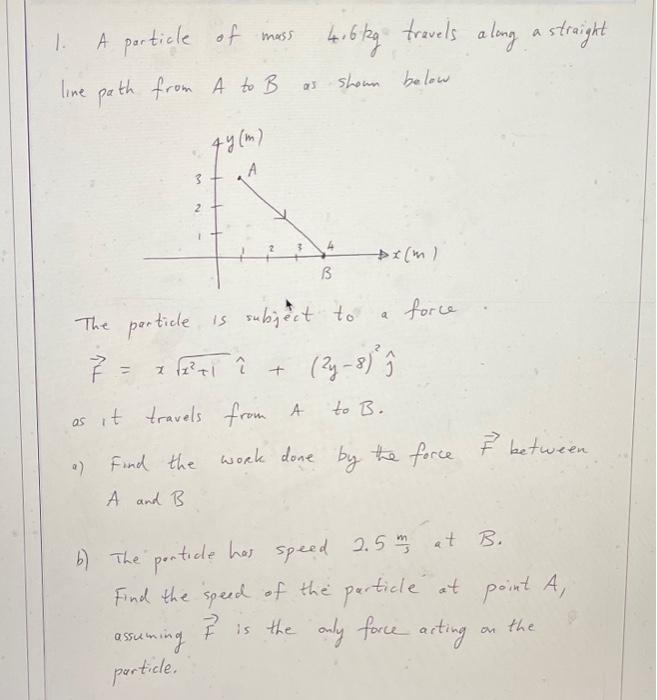 1. A particle of mass 4.6 kg travels along a straight
line path from A to B as shown below
y(m)
3 A
2
1
1 2 3 4 x(m)
B
The particle is subject to a force
F⃗ = x √(x²+1) î + (2y-8)² ĵ
as it travels from A to B.
a) Find the work done by the force F⃗ between
A and B
b) The particle has speed 2.5 m/s at B.
Find the speed of the particle at point A,
assuming F⃗ is the only force acting on the
particle.